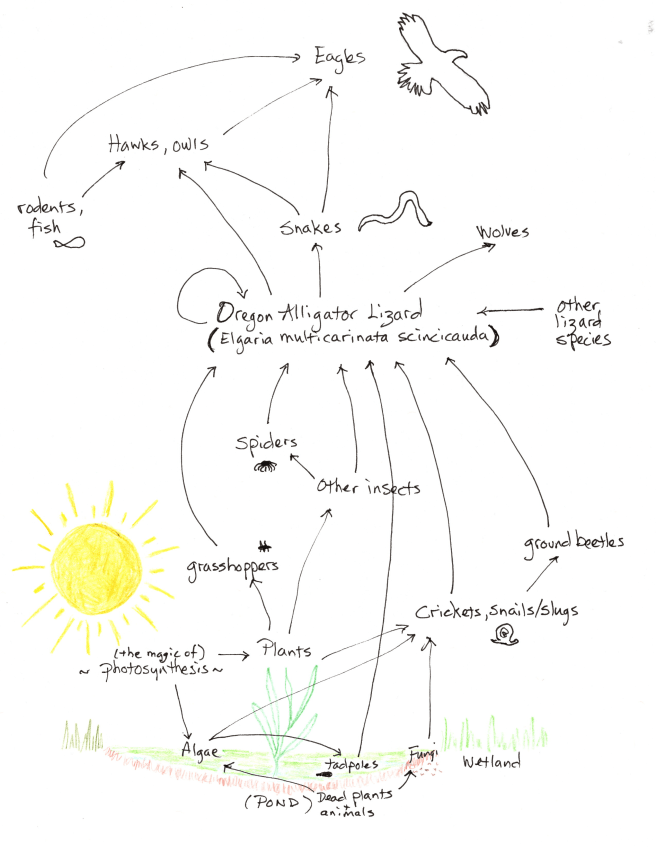 Eagles
Hawks, owls
rodents,
fish
Snakes
Wolves
Oregon Alligator Lizard
(Elgaria multicarinata scincicauda)
other
lizard
species
Spiders
Other insects
grasshoppers
ground beetles
Crickets, Snails/Slugs
(the magic of)
~ photosynthesis ~
Plants
Algae
tadpoles
Fungi
Wetland
(POND)
Dead plants
+
animals